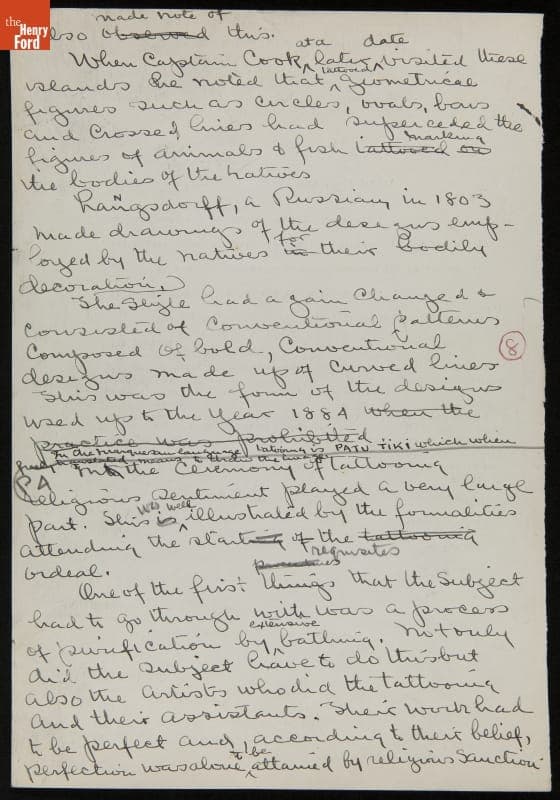 the
Henry
Ford
made note of
also observed this.
at a date
When Captain Cook later visited these
tattooed
islands he noted that geometrical
figures such as circles, ovals, bars
and crossed lines had superceded the
marking
figures of animals & fish tattooed on
the bodies of the natives
Langsdorff, a Russian, in 1803
made drawings of the designs emp-
for
loyed by the natives in their bodily
decoration.
The style had again changed &
consisted of conventional patterns
composed of bold, conventional
8
designs made up of curved lines
This was the form of the designs
used up to the year 1884 when the
practice was prohibited
In the Marquesan language tatooing is PATU TIKI which when
freely translated means to strike the image
PA
In the ceremony of tattooing
religious sentiment played a very large
was well
part. This is illustrated by the formalities
attending the starting of the tattooing
requisites
ordeal.
One of the first things that the subject
had to go through with was a process
extensive
of purification by bathing. Not only
did the subject have to do this but
also the artists who did the tattooing
and their assistants. Their work had
to be perfect and, according to their belief,
to be
perfection was alone attained by religious sanction